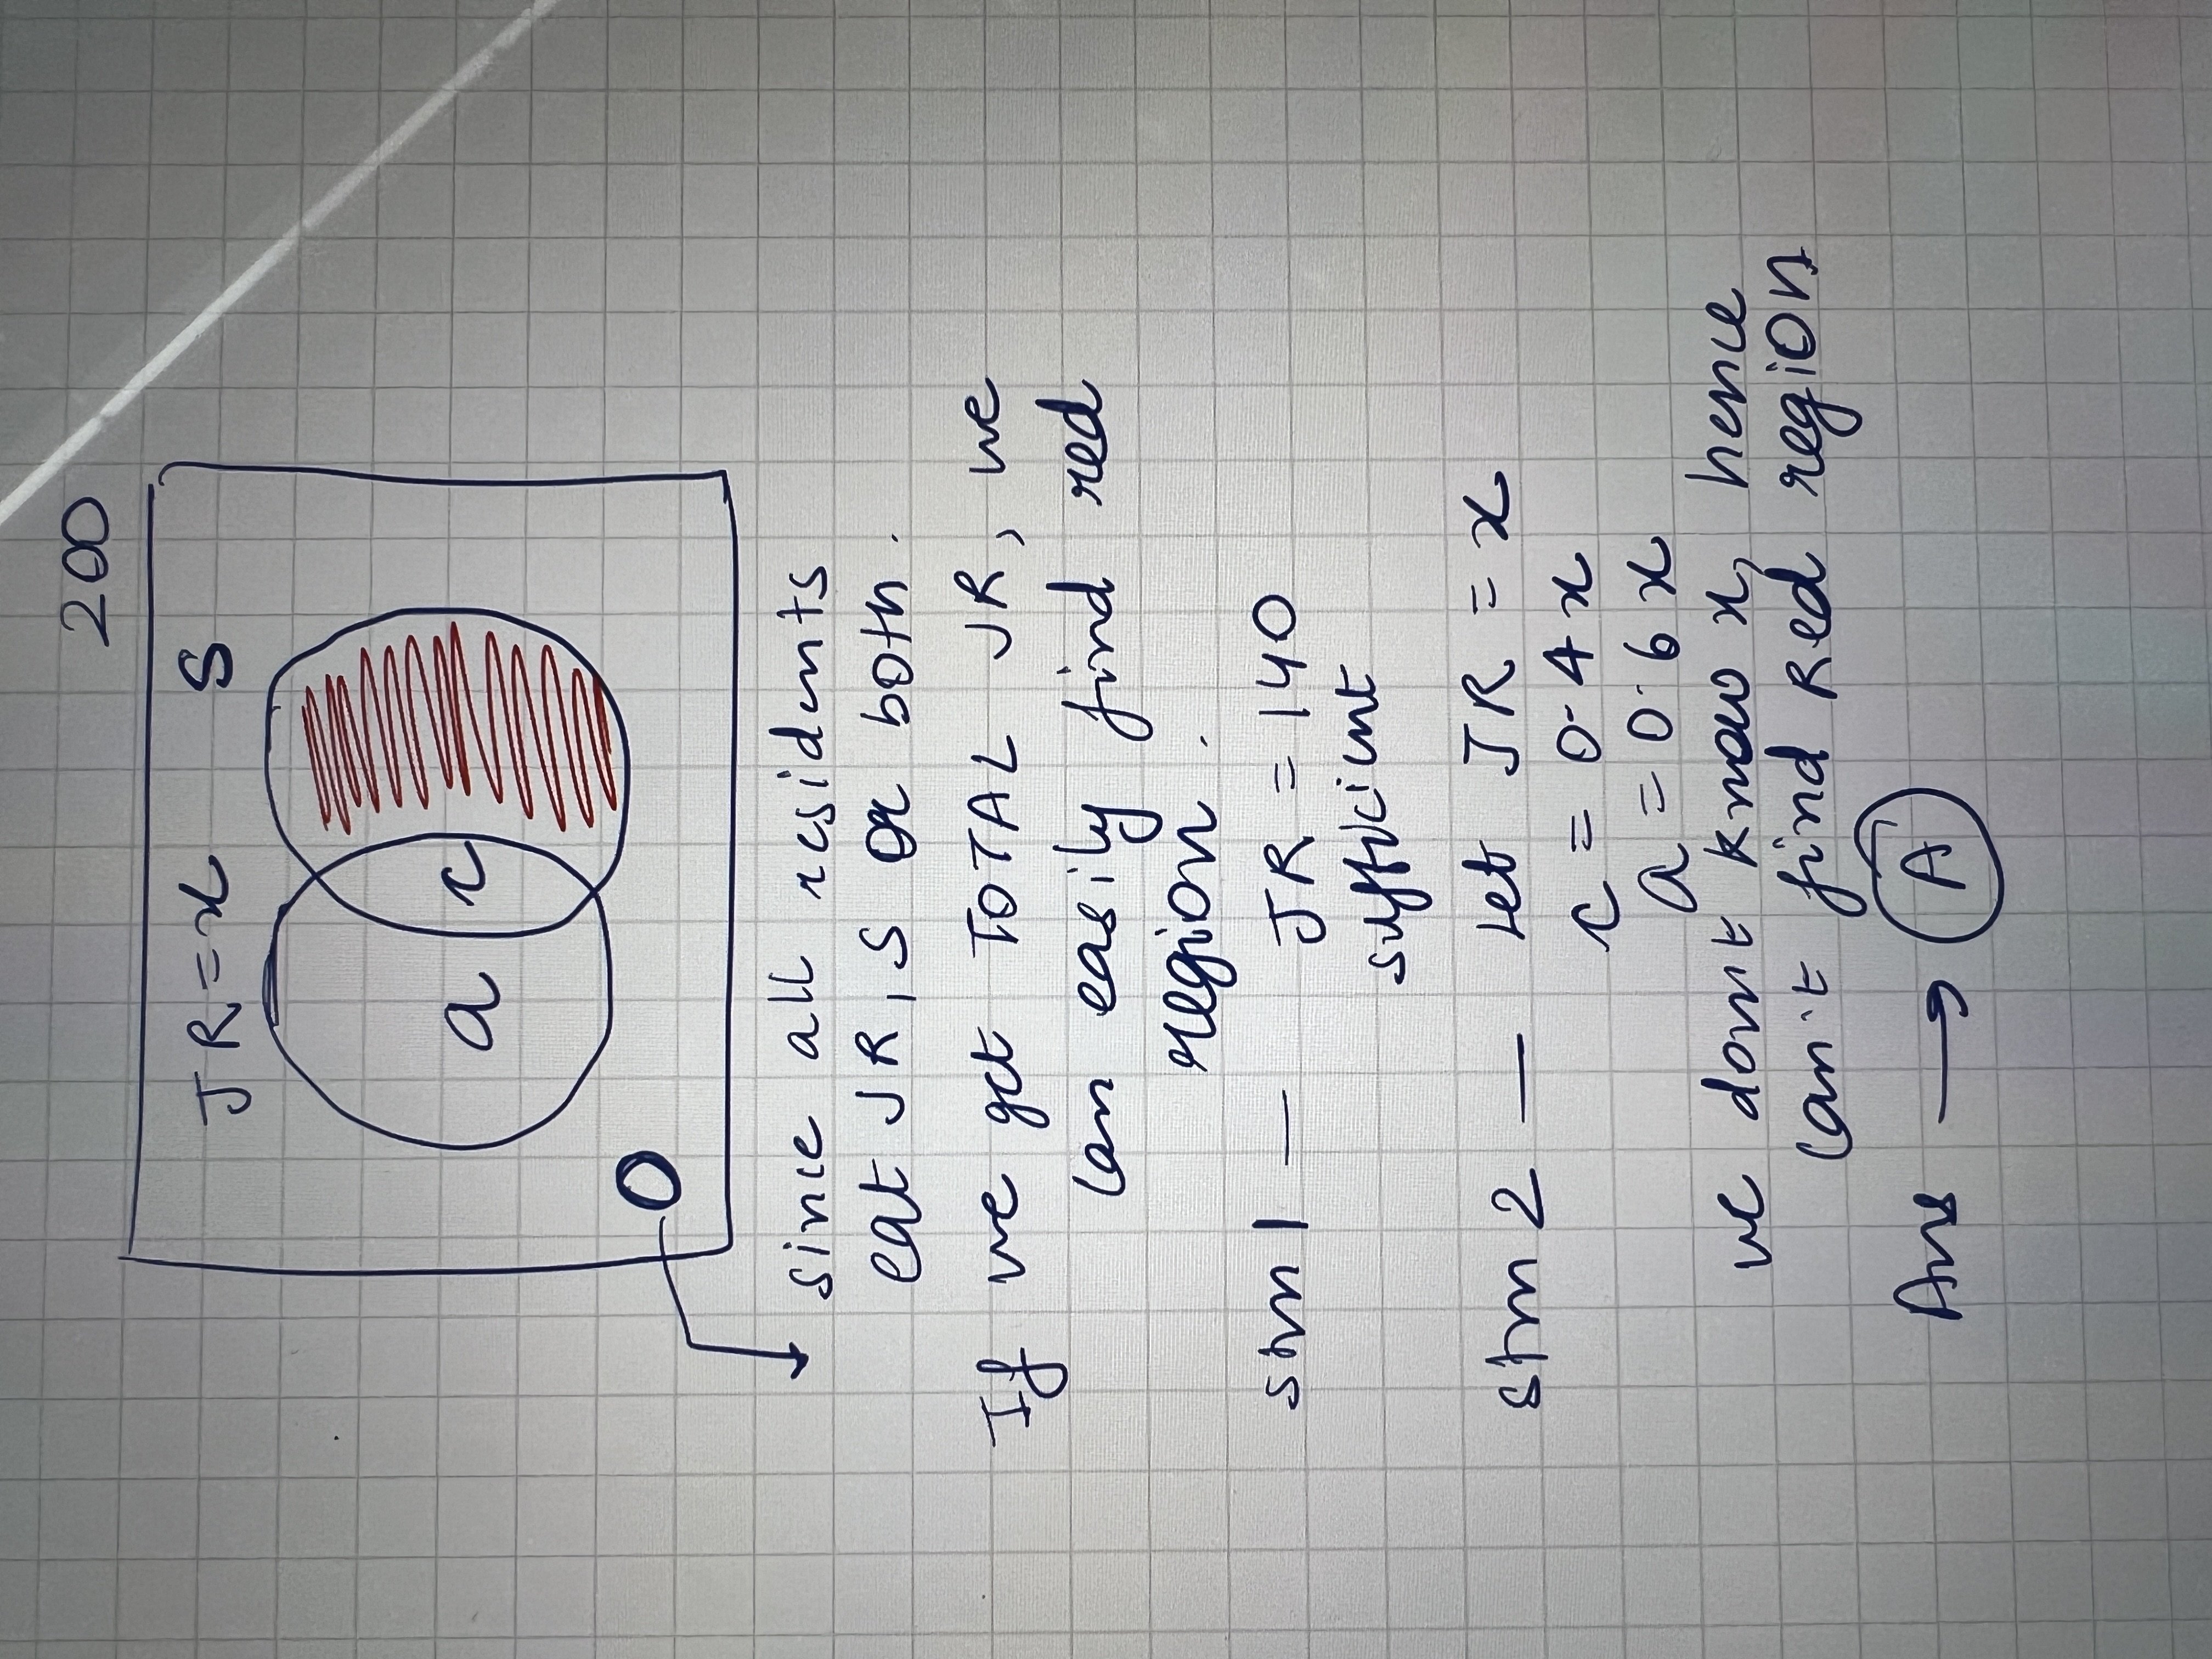 200
JR=x S
a c
O
since all residents
eat JR, S or both.
If we get TOTAL JR, we
can easily find red
region.
stm 1 — JR = 140
sufficient
stm 2 — Let JR = x
c = 0.4x
a = 0.6x
we don't know x, hence
can't find Red region
Ans → A